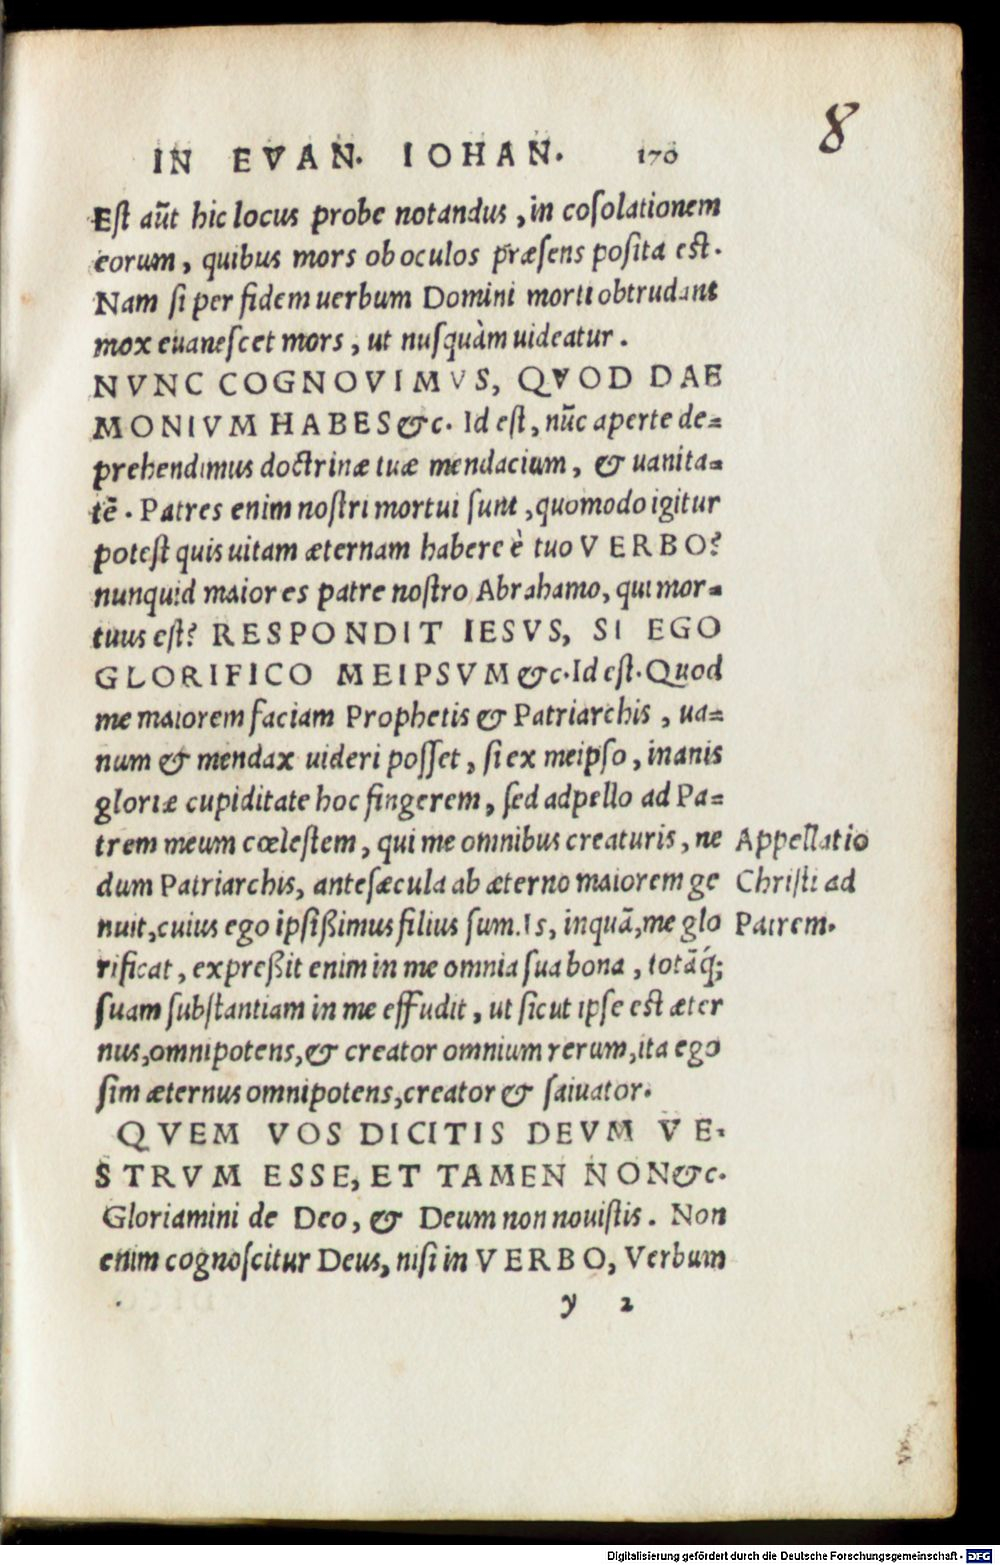 8
IN EVAN. IOHAN. 170
Eſt aũt hic locus probe notandus, in cõſolationem
eorum, quibus mors ob oculos præſens poſita eſt.
Nam ſi per fidem uerbum Domini morti obtrudant
mox euaneſcet mors, ut nuſquàm uideatur.
NVNC COGNOVIMVS, QVOD DAE
MONIVM HABES &c. Id eſt, nũc aperte de⸗
prehendimus doctrinæ tuæ mendacium, & uanita⸗
tẽ. Patres enim noſtri mortui ſunt, quomodo igitur
poteſt quis uitam æternam habere è tuo VERBO?
nunquid maior es patre noſtro Abrahamo, qui mor⸗
tuus eſt? RESPONDIT IESVS, SI EGO
GLORIFICO MEIPSVM &c. Id eſt. Quod
me maiorem faciam Prophetis & Patriarchis, ua⸗
num & mendax uideri poſſet, ſi ex meipſo, inanis
gloriæ cupiditate hoc fingerem, ſed adpello ad Pa⸗
trem meum cœleſtem, qui me omnibus creaturis, ne
dum Patriarchis, ante ſæcula ab æterno maiorem ge
nuit, cuius ego ipſiſzimus filius ſum. Is, inquã, me glo
rificat, expreſzit enim in me omnia ſua bona, totãq́;
ſuam ſubſtantiam in me effudit, ut ſicut ipſe eſt æter
nus, omnipotens, & creator omnium rerum, ita ego
ſim æternus omnipotens, creator & ſaluator.
QVEM VOS DICITIS DEVM VE-
STRVM ESSE, ET TAMEN NON &c.
Gloriamini de Deo, & Deum non nouiſtis. Non
enim cognoſcitur Deus, niſi in VERBO, Verbum
y 2
Appellatio
Chriſti ad
Patrem.
Digitalisierung gefördert durch die Deutsche Forschungsgemeinschaft - DFG